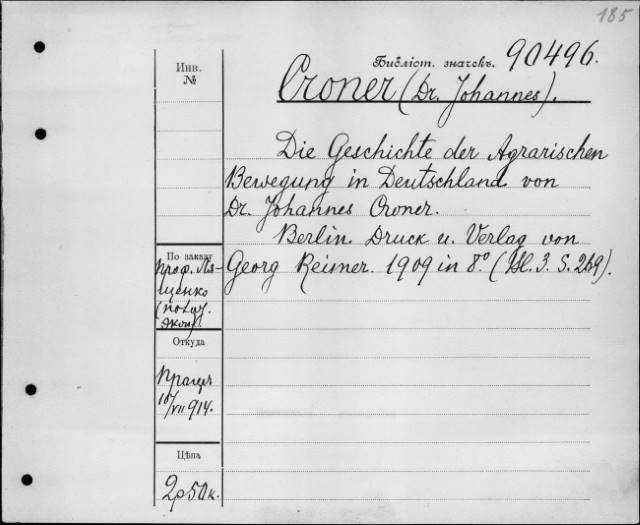 185
Библіот. значекъ. 90496.
Инв. №
Croner (Dr. Johannes).
Die Geschichte der Agrarischen
Bewegung in Deutschland von
Dr. Johannes Croner.
Berlin. Druck u. Verlag von
Georg Reimer. 1909 in 8º
S. 269).
По заказу
проф. Ля-
щенко
Откуда
10/VII 914.
Цѣна
2р50к.